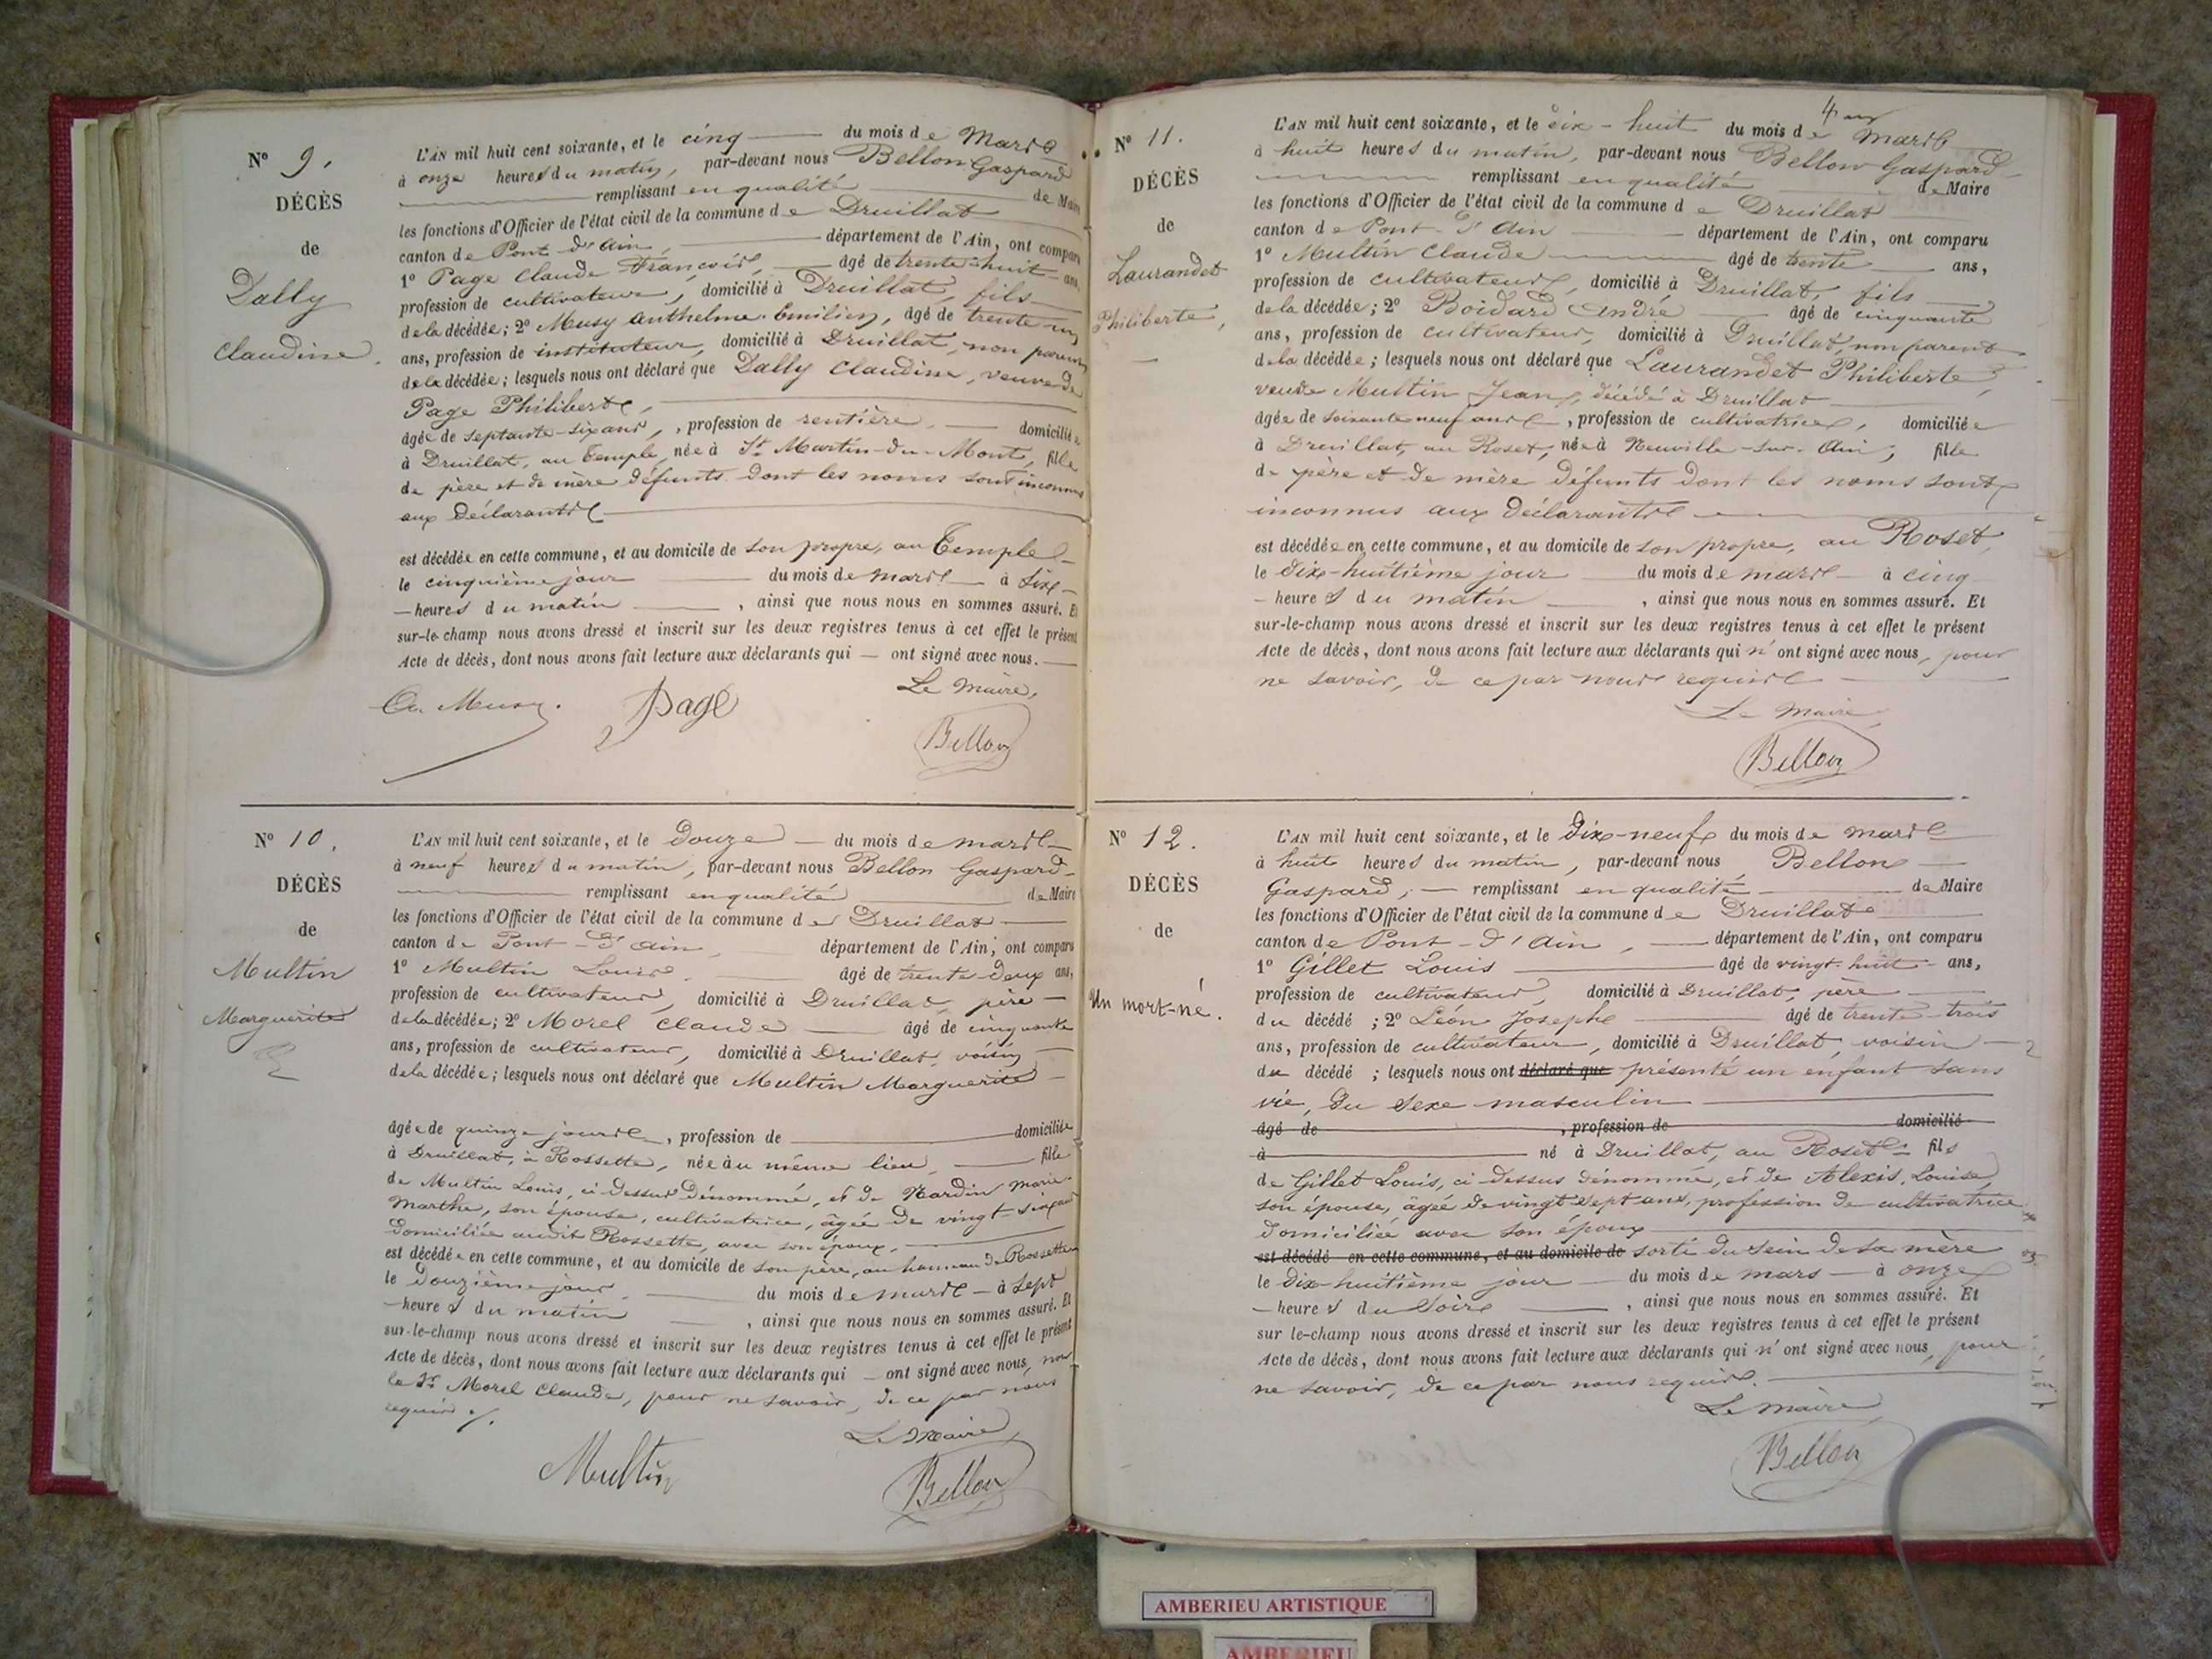 N° 9.
DÉCÈS
de
Dally
Claudine.
L'AN mil huit cent soixante, et le cinq du mois de Mars
à onze heures du matin, par-devant nous Bellon Gaspard
remplissant en qualité de Maire
les fonctions d'Officier de l'état civil de la commune de Druillat
canton de Pont-d'Ain, département de l'Ain, ont comparu
1° Page Claude François, âgé de trente-huit ans,
profession de cultivateur, domicilié à Druillat, fils
de la décédée; 2° Musy Anthelme Emilien, âgé de trente un
ans, profession de instituteur, domicilié à Druillat, non parent
de la décédée; lesquels nous ont déclaré que Dally Claudine, veuve de
Page Philibert,
âgée de septante-six ans, profession de rentière domiciliée
à Druillat, au Temple, née à St Martin-du-Mont, fille
de père et de mère défunts dont les noms sont inconnus
aux déclarants
est décédée en cette commune, et au domicile de son propre, au Temple
le cinquième jour du mois de mars à six
heures du matin, ainsi que nous nous en sommes assuré. Et
sur-le-champ nous avons dressé et inscrit sur les deux registres tenus à cet effet le présent
Acte de décès, dont nous avons fait lecture aux déclarants qui — ont signé avec nous.
Le Maire,
Musy. Page
Bellon
N° 10.
DÉCÈS
de
Multin
Marguerite
L'AN mil huit cent soixante, et le Douze du mois de mars
à neuf heures du matin, par-devant nous Bellon Gaspard
remplissant en qualité de Maire
les fonctions d'Officier de l'état civil de la commune de Druillat
canton de Pont-d'Ain, département de l'Ain, ont comparu
1° Multin Louis, âgé de trente-deux ans,
profession de cultivateur, domicilié à Druillat, père
de la décédée; 2° Morel Claude âgé de cinquante
ans, profession de cultivateur, domicilié à Druillat, voisin
de la décédée; lesquels nous ont déclaré que Multin Marguerite
âgée de quinze jours, profession de domiciliée
à Druillat, à Rossette, née au même lieu, fille
de Multin Louis, ci-dessus dénommé, et de Nardin Marie
Marthe, son épouse, cultivatrice, âgée de vingt-six ans
domiciliée audit Rossette, avec son époux,
est décédée en cette commune, et au domicile de son père, au hameau de Rossette
le douzième jour du mois de mars à sept
heures du matin, ainsi que nous nous en sommes assuré. Et
sur-le-champ nous avons dressé et inscrit sur les deux registres tenus à cet effet le présent
Acte de décès, dont nous avons fait lecture aux déclarants qui — ont signé avec nous, non
le Sr Morel Claude, pour ne savoir, de ce par nous
requis.
Le Maire,
Multin
Bellon
N° 11.
DÉCÈS
de
Laurandet
Philiberte,
L'AN mil huit cent soixante, et le dix-huit du mois de Mars
à huit heures du matin, par-devant nous Bellon Gaspard
remplissant en qualité de Maire
les fonctions d'Officier de l'état civil de la commune de Druillat
canton de Pont-d'Ain département de l'Ain, ont comparu
1° Multin Claude âgé de trente ans,
profession de cultivateur, domicilié à Druillat, fils
de la décédée; 2° Boidard André âgé de cinquante
ans, profession de cultivateur, domicilié à Druillat, non parent
de la décédée; lesquels nous ont déclaré que Laurandet Philiberte,
veuve Multin Jean, décédé à Druillat
âgée de soixante neuf ans, profession de cultivatrice, domiciliée
à Druillat, au Roset, née à Neuville-sur-Ain, fille
de père et de mère défunts dont les noms sont
inconnus aux déclarants
est décédée en cette commune, et au domicile de son propre, au Roset,
le dix-huitième jour du mois de mars à cinq
heures du matin, ainsi que nous nous en sommes assuré. Et
sur-le-champ nous avons dressé et inscrit sur les deux registres tenus à cet effet le présent
Acte de décès, dont nous avons fait lecture aux déclarants qui n'ont signé avec nous, pour
ne savoir, de ce par nous requis
Le Maire
Bellon
N° 12.
DÉCÈS
de
Un mort-né.
L'AN mil huit cent soixante, et le Dix-neuf du mois de mars
à huit heures du matin, par-devant nous Bellon
Gaspard, remplissant en qualité de Maire
les fonctions d'Officier de l'état civil de la commune de Druillat
canton de Pont-d'Ain, département de l'Ain, ont comparu
1° Gillet Louis âgé de vingt-huit ans,
profession de cultivateur, domicilié à Druillat, père
du décédé; 2° Léon Josephe âgé de trente-trois
ans, profession de cultivateur, domicilié à Druillat, voisin
du décédé; lesquels nous ont déclaré que présenté un enfant sans
vie, du sexe masculin
âgé de, profession de domicilié
à né à Druillat, au Roset fils
de Gillet Louis, ci-dessus dénommé, et de Alexis, Louise,
son épouse, âgée de vingt sept ans, profession de cultivatrice
domiciliée avec son époux
est décédé en cette commune, et au domicile de sorti du sein de sa mère
le dix-huitième jour du mois de mars à onze
heures du soir, ainsi que nous nous en sommes assuré. Et
sur le-champ nous avons dressé et inscrit sur les deux registres tenus à cet effet le présent
Acte de décès, dont nous avons fait lecture aux déclarants qui n'ont signé avec nous, pour
ne savoir, de ce par nous requis.
Le Maire
Bellon
AMBERIEU ARTISTIQUE
AMBERIEU